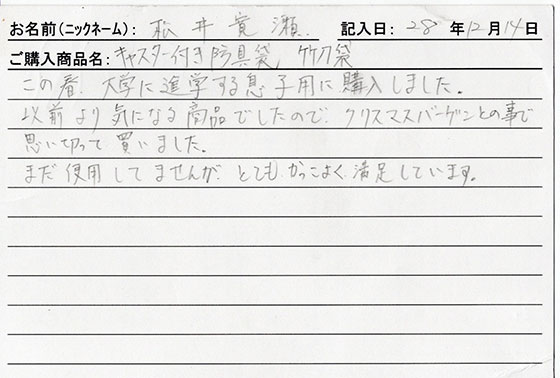 お名前(ニックネーム): 松井寛瀬 記入日: 28 年 12 月 14 日
ご購入商品名: キャスター付き防具袋 竹刀袋
この春、大学に進学する息子用に購入しました。
以前より気になる商品でしたので、クリスマスバーゲンとの事で
思い切って買いました。
まだ使用してませんが、とても、かっこよく、満足しています。